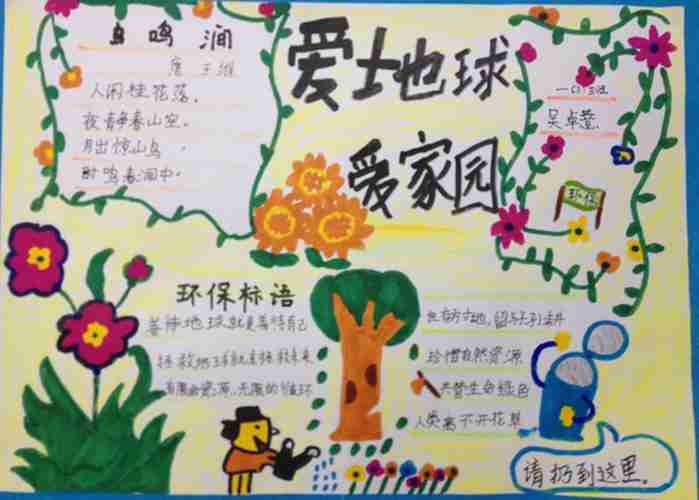 鸟鸣涧
唐 王维
人闲桂花落，
夜静春山空。
月出惊山鸟，
时鸣春涧中。
爱地球
爱家园
一(1)班
吴卓萱
环保
环保标语
善待地球就是善待自己
拯救地球就是拯救未来
有限的资源，无限的循环
但存方寸地，留与子孙耕
珍惜自然资源
共营生命绿色
人类离不开花草
请扔到这里。